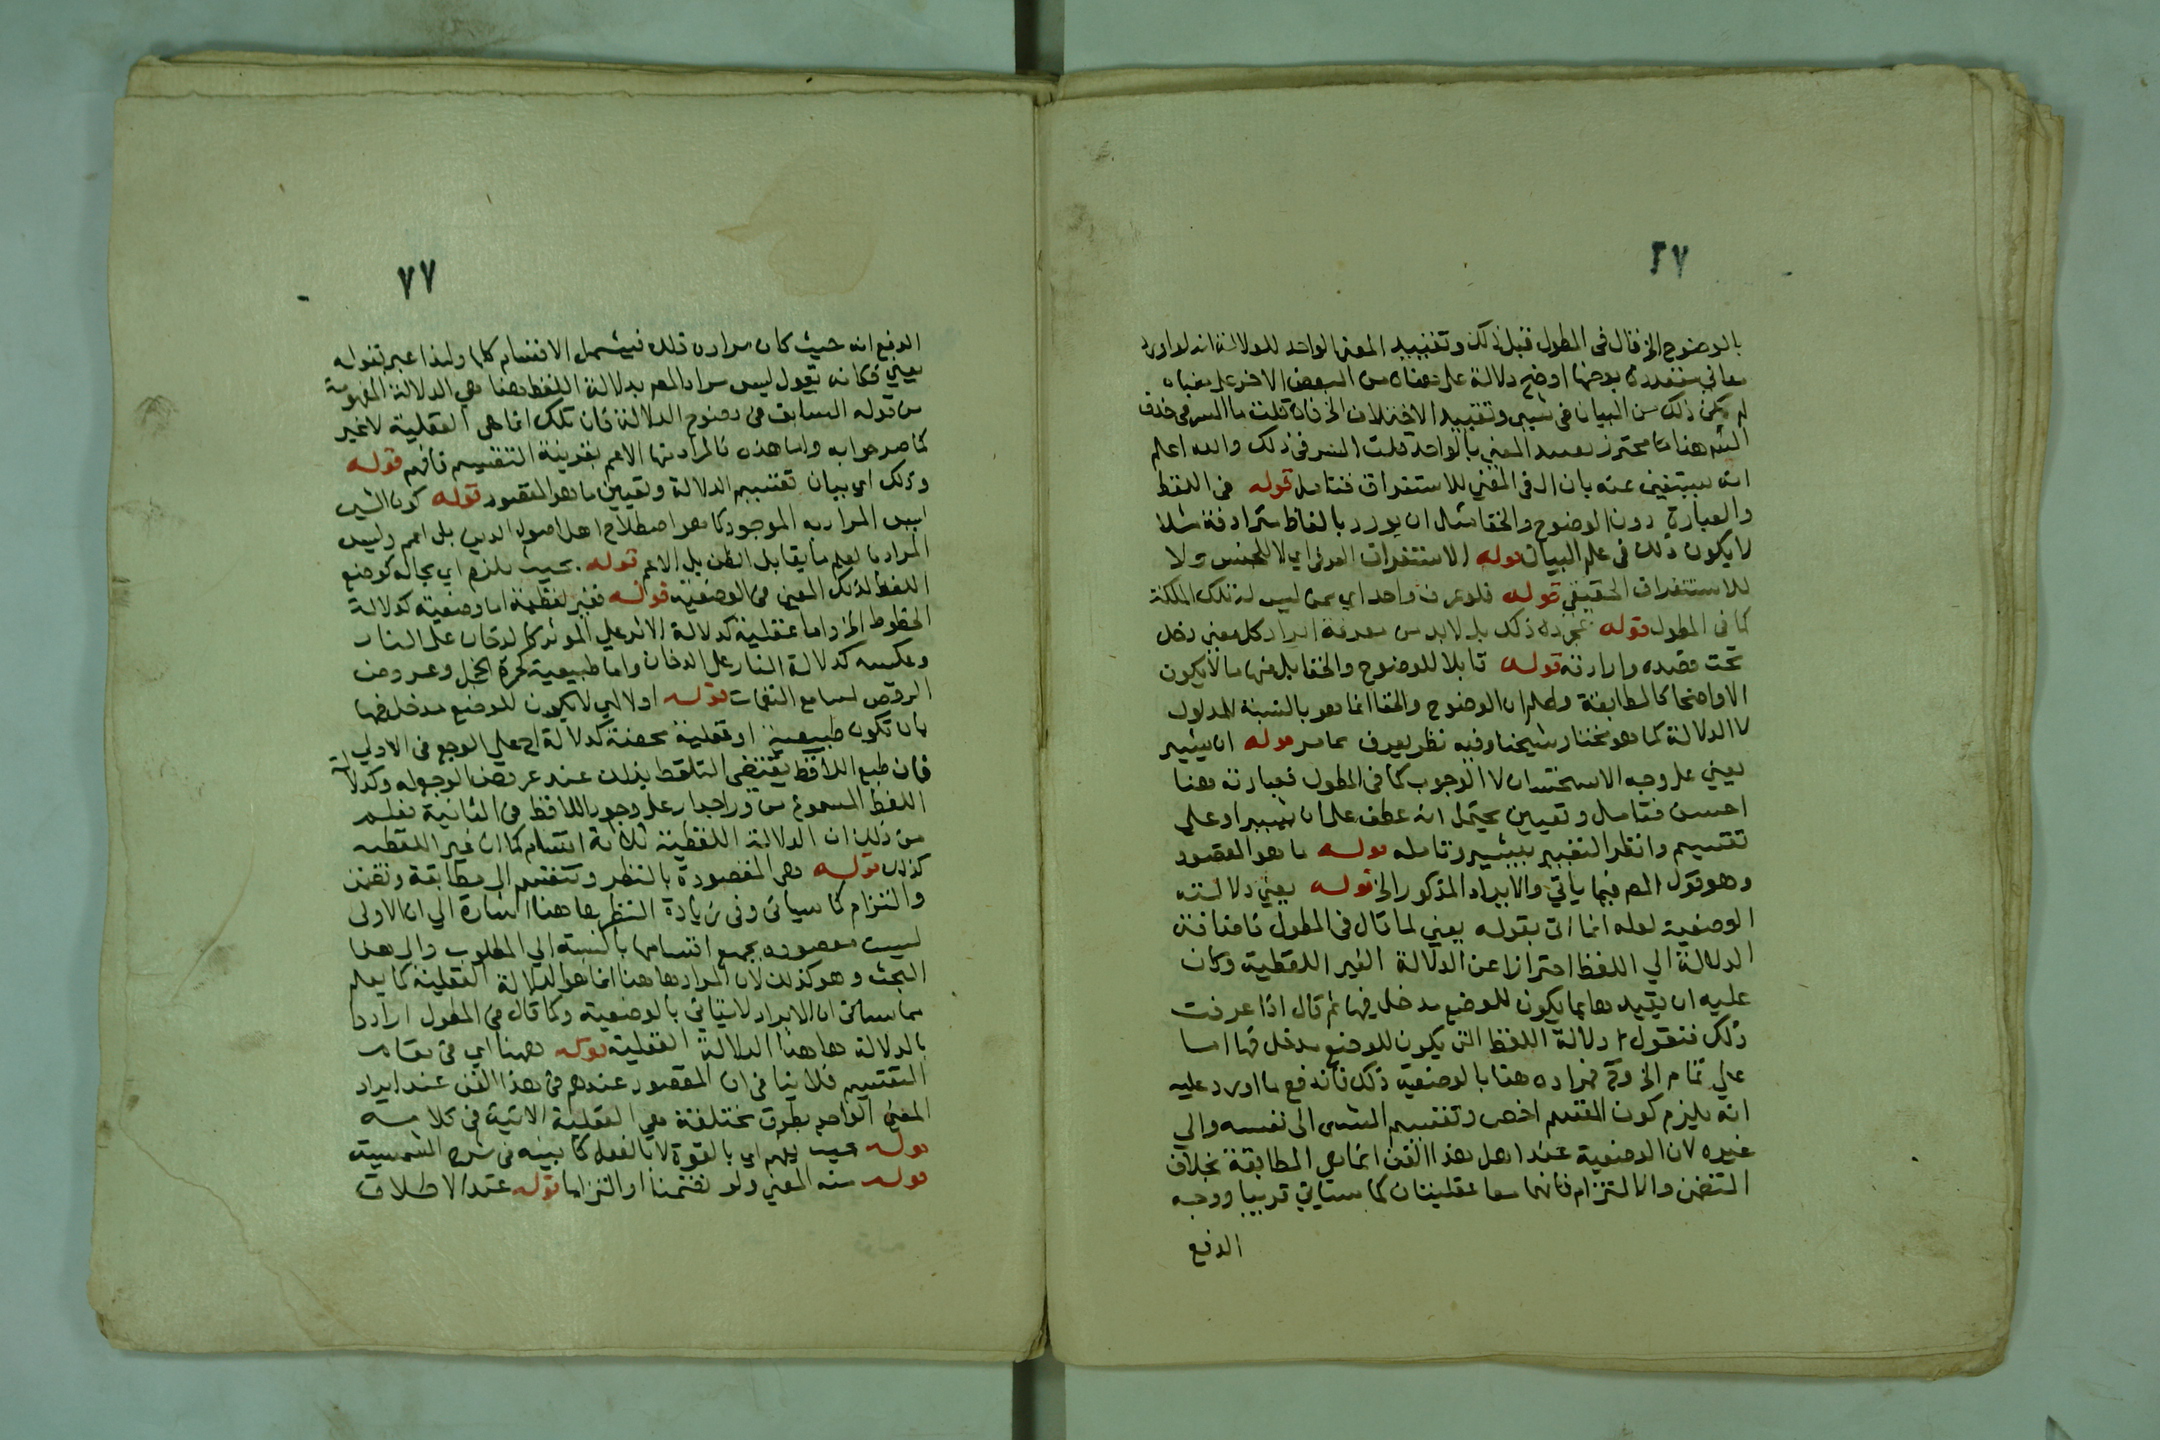 ٢٧
بالوضوح الخ قال في المطول قبل ذلك وتقييد المعنى الواحد للدلالة انه لو اورد
معاني متعددة بعضها اوضح دلالة على معناه من البعض الاخر على معناه
لم يكن ذلك من البيان في شيء وتقييد الاختلاف الخ فان قلت ما السر في حذف
الشم هنا محترز تقييد المعنى بالواحد قلت السر في ذلك والله اعلم
انه يستغنى عنه بان ال في المعنى للاستغراق فتامل قوله في اللفظ
والعبارة دون الوضوح والخفا مثال ان يورد بالفاظ مترادفة مثلا
لا يكون ذلك في علم البيان قوله الاستغراق العرفي اي لا للجنس ولا
للاستغراق الحقيقي قوله فلو عرف واحد اي ممن ليس له تلك الملكة
كما في المطول قوله بمجرده ذلك بل لابد من معرفة ايراد كل معنى دخل
تحت قصده وارادته قوله قابلا للوضوح والخفا بل منها ما لا يكون
الا واضحا كالمطابقة واعلم ان الوضوح والخفا انما هو بالنسبة للمدلول
لا الدلالة كما هو مختار شيخنا وفيه نظر يعرف مما مر قوله ان يشير
يعني على وجه الاستحسان لا الوجوب كما في المطول فعبارته هنا
احسن فتامل وتعيين يحتمل انه عطف على ان يشير او على
تقسيم وانظر التعبير بيشير وتامله قوله ما هو المقصود
وهو قول المص فيما ياتي والايراد المذكور الخ قوله يعني دلالته
الوضعية لعله انما اتى بقوله يعني لما قال في المطول فاضافة
الدلالة الي اللفظ احترازا عن الدلالة الغير اللفظية وكان
عليه ان يقيدها بما يكون للوضع مدخل فيها ثم قال اذا عرفت
ذلك فنقول دلالة اللفظ التي يكون للوضع مدخل فيها اما
على تمام الخ وح فمراده هنا بالوضعية ذلك فاندفع ما اورد عليه
انه يلزم كون المقسم اخص وتقسيم الشى الى نفسه والي
غيره لان الوضعية عند اهل هذا الفن انما هي المطابقة بخلاف
التضمن والالتزام فانهما معا عقليتان كما سياتي قريبا ووجه
الدفع
٧٧
الدفع انه حيث كان مراده ذلك فيشمل الاقسام كلها ولهذا عبر بقوله
يعني فكانه يقول ليس مراد المص بدلالة اللفظ هنا هي الدلالة المفهومة
من قوله السابق في وضوح الدلالة فان تلك انما هي العقلية لا غير
كما صرحوا به واما هذه فالمراد منها الاعم بقرينة التقسيم فافهم قوله
وذلك اي بيان تقسيم الدلالة وتعيين ما هو المقصود قوله كون الشي
ليس المراد به الموجود كما هو اصطلاح اهل اصول الدين بل اعم وليس
المراد بالعلم ما يقابل الظن بل الاعم قوله بحيث يلزم اي بحاله كوضع
اللفظ لذلك المعنى في الوضعية قوله فغير لفظية اما وضعية كدلالة
الخطوط الخ واما عقلية كدلالة الاثر على الموثر كالدخان على النار
وعكسه كدلالة النار على الدخان واما طبيعية كحمرة الخجل وعروض
الرقص لسامع النغمات قوله اولا اي لا يكون للوضع مدخل فيها
بان تكون طبيعية او عقلية محضة كدلالة اح على الوجع في الاولى
فان طبع اللافظ يقتضي التلفظ بذلك عند عروض الوجع له وكدلالة
اللفظ المسموع من وراء جدار على وجود اللافظ في الثانية فعلم
من ذلك ان الدلالة اللفظية ثلاثة اقسام كما ان غير اللفظية
كذلك قوله هي المقصودة بالنظر وتنقسم الى مطابقة وتضمن
والتزام كما سياتي وفي زيادة النظر هاهنا اشارة الي ان الاولى
ليست مقصودة بجميع اقسامها بالنسبة الي المطلوب والى هذا
البحث وهو كذلك لان المراد هاهنا انما هو الدلالة العقلية كما يعلم
مما سياتي ان الايراد لا يتاتى بالوضعية وكما قال في المطول اراد
بالدلالة هاهنا الدلالة العقلية قوله ههنا اي في مقام
التقسيم فلا ينافي ان المقصود عندهم في هذا الفن عند ايراد
المعنى الواحد بطرق مختلفة هي العقلية الاتية في كلامه
قوله بحيث يفهم اي بالقوة لا بالفعل كما بينه في شرح الشمسية
قوله منه المعنى ولو تضمنا او التزاما قوله عند الاطلاق